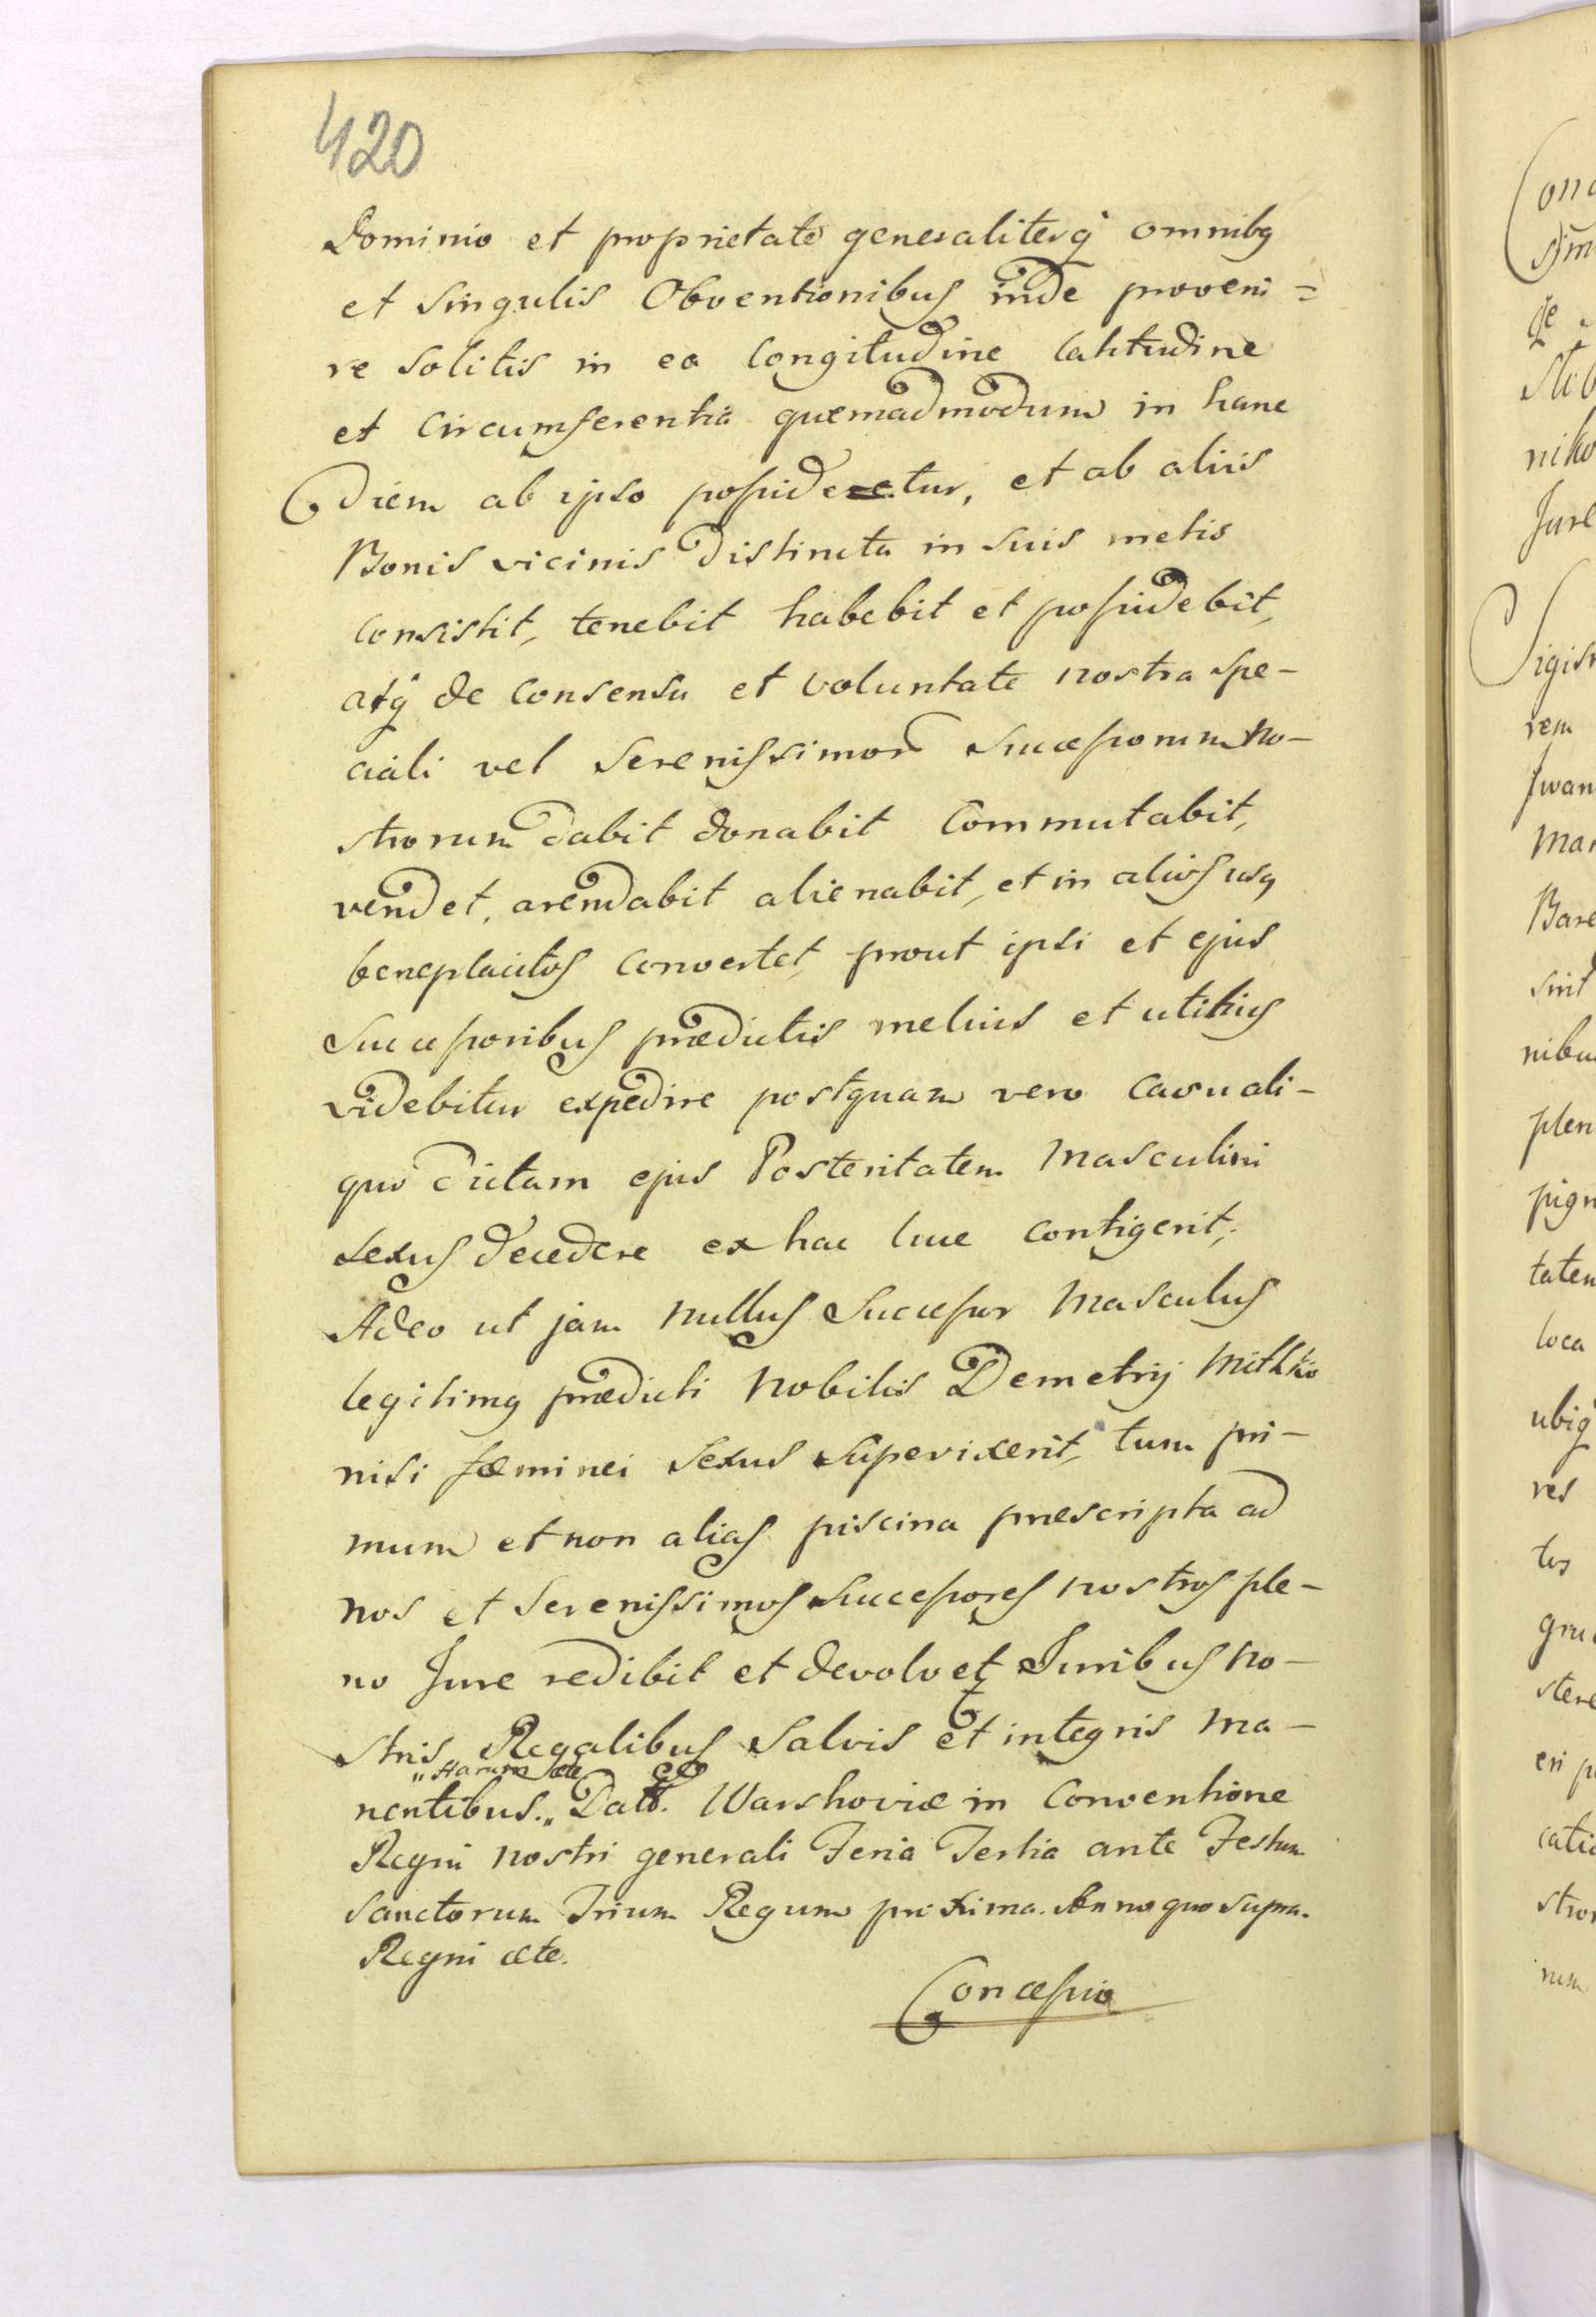 420
Dominio et proprietate generaliterq́ omnibq
et singulis Obventionibus inde proveni=
re solitis in ea longitudine latitudine
et circumferentia quemadmodum in hanc
diem ab ipso possideretur, et ab aliis
Bonis vicinis distincta in suis metis
consistit, tenebit habebit et possidebit,
atq́ de consensu et voluntate nostra spe-
ciali vel Serenissimor Successorum no-
strorum dabit donabit commutabit,
vendet, arendabit alienabit, et in alios usq
beneplacitos convertet, prout ipsi et ejus
Successoribus prædictis melius et utilius
videbitur expedire postquam vero casu ali-
quo dictam ejus Posteritatem Masculini
sexus decedere ex hac luce contigerit,
Adeo ut jam nullus Successor Masculus
legitimq prædicti Nobilis Demetrij Mithko
nisi fœminei sexus supervixerit, tum pri-
mum et non alias piscina præscripta ad
nos et Serenissimos Successores nostros ple-
no Jure redibit et devolvet, Juribus no-
stris Regalibus salvis et integris ma-
"Harum ete
nentibus." Datt. Warshoviæ in Conventione
Regni nostri generali Feria Tertia ante Festum
Sanctorum Trium Regum proxima. Anno quo supra.
Regni ete.
Concessio
Sigis
rem
Jwan
Mar
Bare
nibu
plen
pign
taten
loca
ubiq́
res